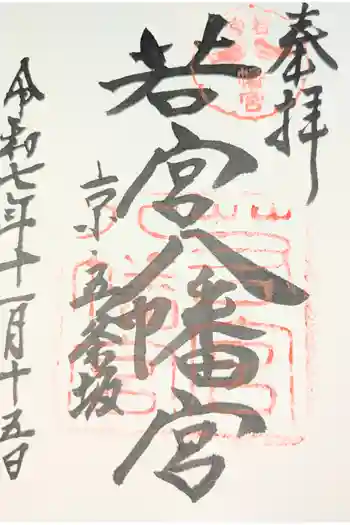 奉拝
若宮八幡宮
京・五条坂
令和七年十一月十五日